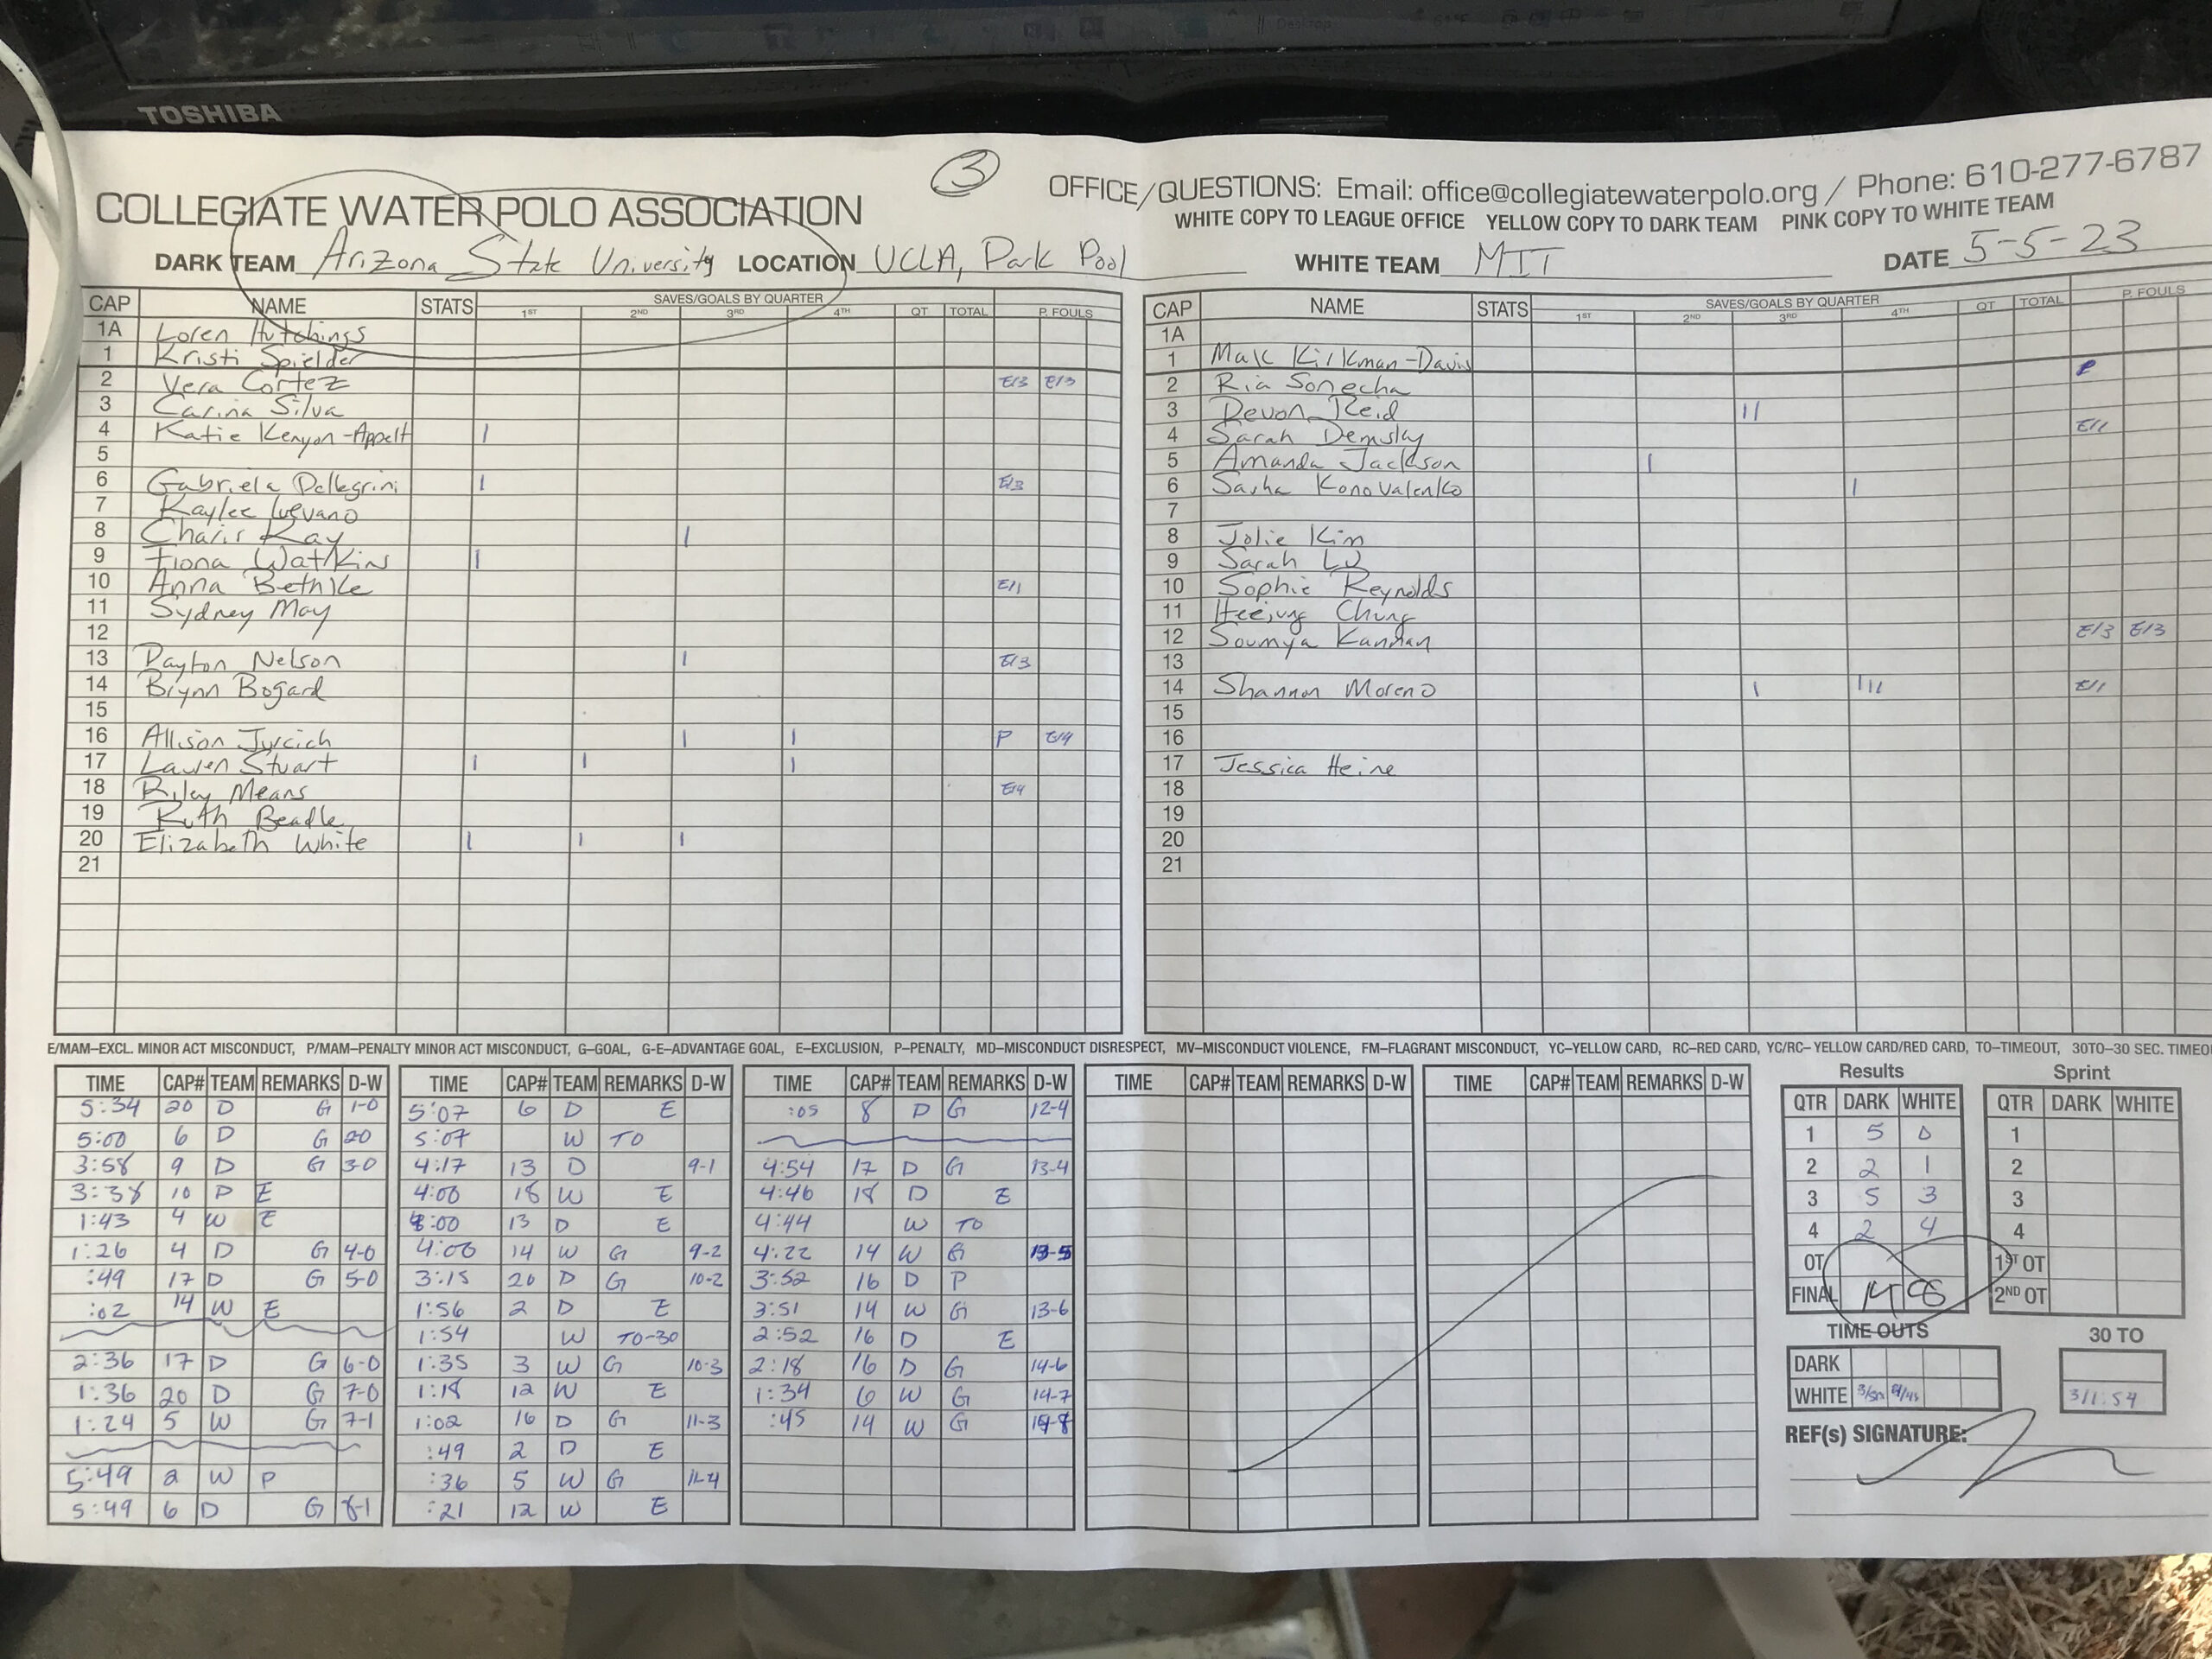 Desktop
TOSHIBA
3
COLLEGIATE WATER POLO ASSOCIATION
OFFICE/QUESTIONS: Email: office@collegiatewaterpolo.org / Phone: 610-277-6787
WHITE COPY TO LEAGUE OFFICE YELLOW COPY TO DARK TEAM PINK COPY TO WHITE TEAM
DARK TEAM Arizona State University LOCATION UCLA, Park Pool
WHITE TEAM MIT DATE 5-5-23
CAP NAME STATS SAVES/GOALS BY QUARTER 1ST 2ND 3RD 4TH OT TOTAL P. FOULS
1A Loren Hutchings
1 Kristi Spielder
2 Vera Cortez E/3 E/3
3 Carina Silva
4 Katie Kenyon-Appelt |
5
6 Gabriela Pellegrini | E/3
7 Kaylee Luevano
8 Charis Kay |
9 Fiona Watkins |
10 Anna Bethke E/1
11 Sydney May
12
13 Payton Nelson | E/3
14 Brynn Bogard
15
16 Allison Jurcich | | P E/4
17 Lauren Stuart | | |
18 Riley Means E/4
19 Ruth Beadle
20 Elizabeth White | | |
21
CAP NAME STATS SAVES/GOALS BY QUARTER 1ST 2ND 3RD 4TH OT TOTAL P. FOULS
1A
1 Kirkman-Davis
2 Ria Sonecha P
3 Devon Reid ||
4 Sarah Demsky E/1
5 Amanda Jackson |
6 Sasha Konovalenko |
7
8 Jolie Kim
9 Sarah Lu
10 Sophie Reynolds
11 Heejung Chung
12 Soumya Kannan E/3 E/3
13
14 Shannon Moreno | ||| E/1
15
16
17 Jessica Heine
18
19
20
21
E/MAM–EXCL. MINOR ACT MISCONDUCT, P/MAM–PENALTY MINOR ACT MISCONDUCT, G–GOAL, G-E–ADVANTAGE GOAL, E–EXCLUSION, P–PENALTY, MD–MISCONDUCT DISRESPECT, MV–MISCONDUCT VIOLENCE, FM–FLAGRANT MISCONDUCT, YC–YELLOW CARD, RC–RED CARD, YC/RC–YELLOW CARD/RED CARD, TO–TIMEOUT, 30TO–30 SEC. TIMEO
TIME CAP# TEAM REMARKS D-W
5:34 20 D G 1-0
5:00 6 D G 20
3:58 9 D G 3-0
3:38 10 D E
1:43 4 W E
1:26 4 D G 4-0
:49 17 D G 5-0
:02 14 W E
2:36 17 D G 6-0
1:36 20 D G 7-0
1:24 5 W G 7-1
5:49 2 W P
5:49 6 D G 8-1
TIME CAP# TEAM REMARKS D-W
5:07 6 D E
5:07 W TO
4:17 13 D 9-1
4:00 18 W E
:00 13 D E
4:00 14 W G 9-2
3:15 20 D G 10-2
1:56 2 D E
1:54 W TO-30
1:35 3 W G 10-3
1:18 12 W E
1:02 16 D G 11-3
:49 2 D E
:36 5 W G 11-4
:21 12 W E
TIME CAP# TEAM REMARKS D-W
:05 8 D G 12-4
4:54 17 D G 13-4
4:46 18 D E
4:44 W TO
4:22 14 W G 13-5
3:52 16 D P
3:51 14 W G 13-6
2:52 16 D E
2:18 16 D G 14-6
1:34 6 W G 14-7
:45 14 W G 14-8
TIME CAP# TEAM REMARKS D-W
TIME CAP# TEAM REMARKS D-W
Results
QTR DARK WHITE
1 5 0
2 2 1
3 5 3
4 2 4
OT
FINAL 14 8
Sprint
QTR DARK WHITE
1
2
3
4
1ST OT
2ND OT
TIME OUTS
DARK
WHITE
30 TO
3/1:54
REF(s) SIGNATURE: